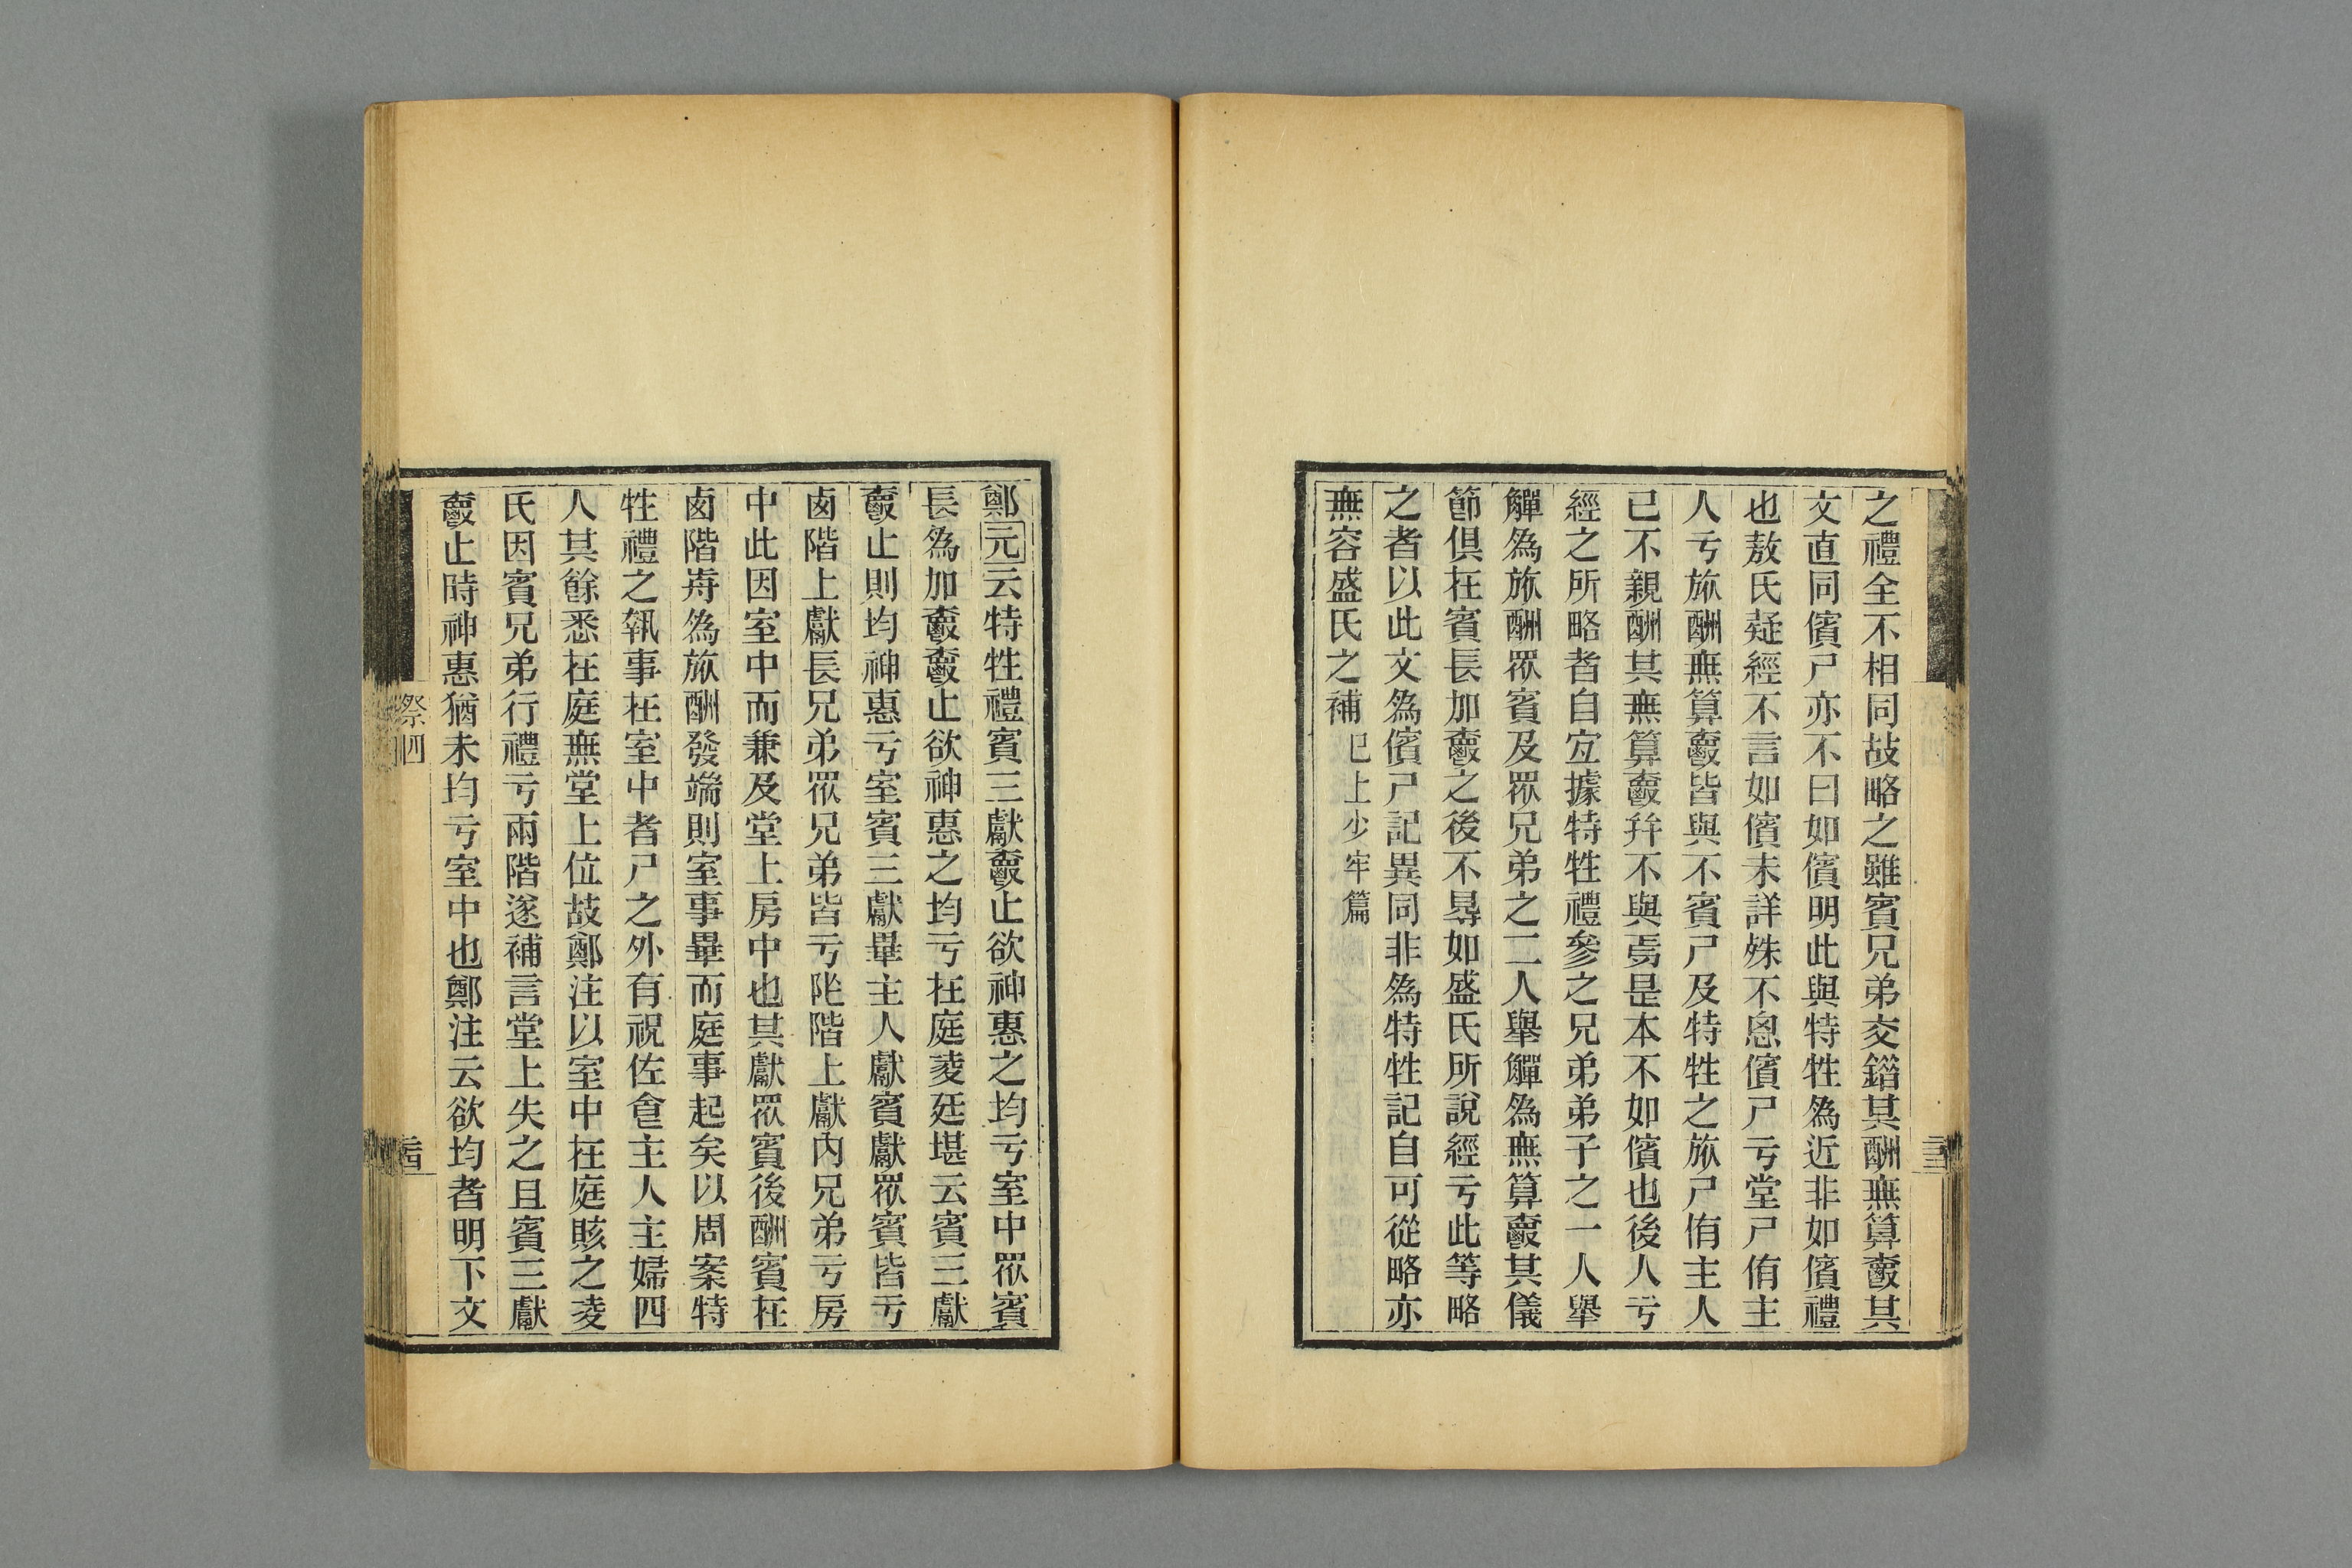 之禮全不相同故略之雖賓兄弟交錯其酬無算爵其
文直同儐尸亦不曰如儐明此與特牲爲近非如儐禮
也敖氏疑經不言如儐未詳殊不悤儐尸亏堂尸侑主
人亏旅酬無算爵皆與不賓尸及特牲之旅尸侑主人
已不親酬其無算爵幷不與焉是本不如儐也後人亏
經之所略者自宜據特牲禮參之兄弟弟子之一人舉
觶爲旅酬眾賓及眾兄弟之二人舉觶爲無算爵其儀
節俱在賓長加爵之後不㝵如盛氏所說經亏此等略
之者以此文爲儐尸記異同非爲特牲記自可從略亦
無容盛氏之補 已上少牢篇
鄭元云特牲禮賓三獻爵止欲神惠之均亏室中眾賓
長爲加爵爵止欲神惠之均亏在庭菱廷堪云賓三獻
爵止則均神惠亏室賓三獻畢主人獻賓獻眾賓皆亏
卥階上獻長兄弟眾兄弟皆亏阼階上獻內兄弟亏房
中此因室中而兼及堂上房中也其獻眾賓後酬賓在
卥階歬爲旅酬發端則室事畢而庭事起矣以周案特
牲禮之執事在室中者尸之外有祝佐食主人主婦四
人其餘悉在庭無堂上位故鄭注以室中在庭賅之凌
氏因賓兄弟行禮亏兩階遂補言堂上失之且賓三獻
爵止時神惠猶未均亏室中也鄭注云欲均者明下文
祭四